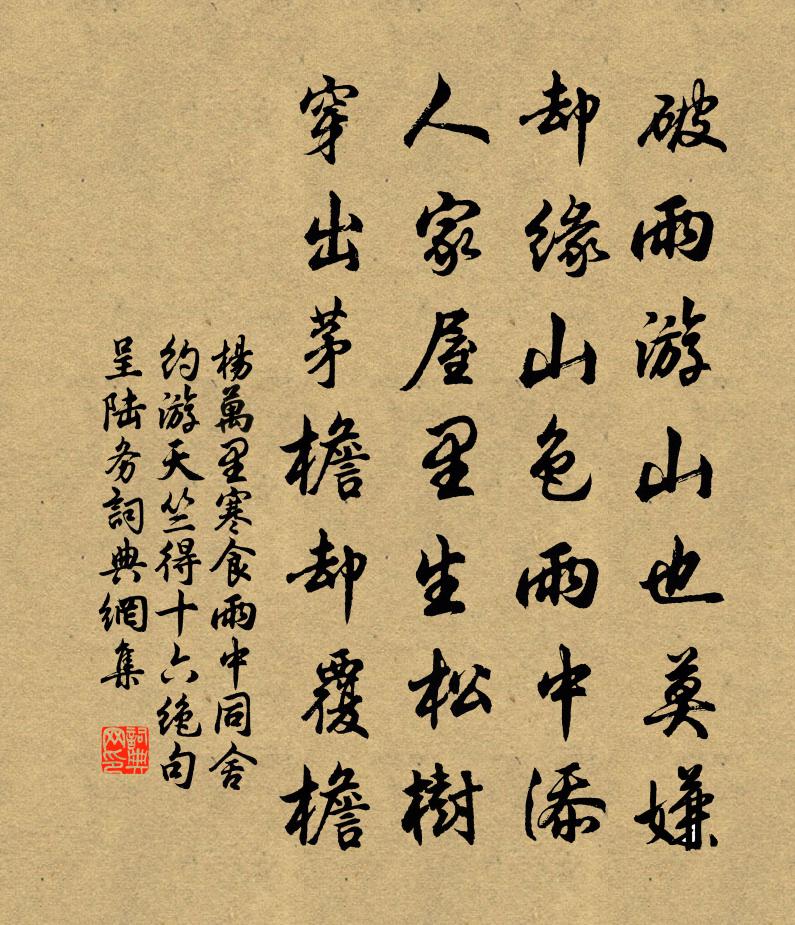 破雨游山也莫嫌
却缘山色雨中添
人家屋里生松樹
穿出茅檐却覆檐
楊萬里寒食雨中同舍
约游天竺得十六绝句
呈陆务詞典網集
詞典
网印